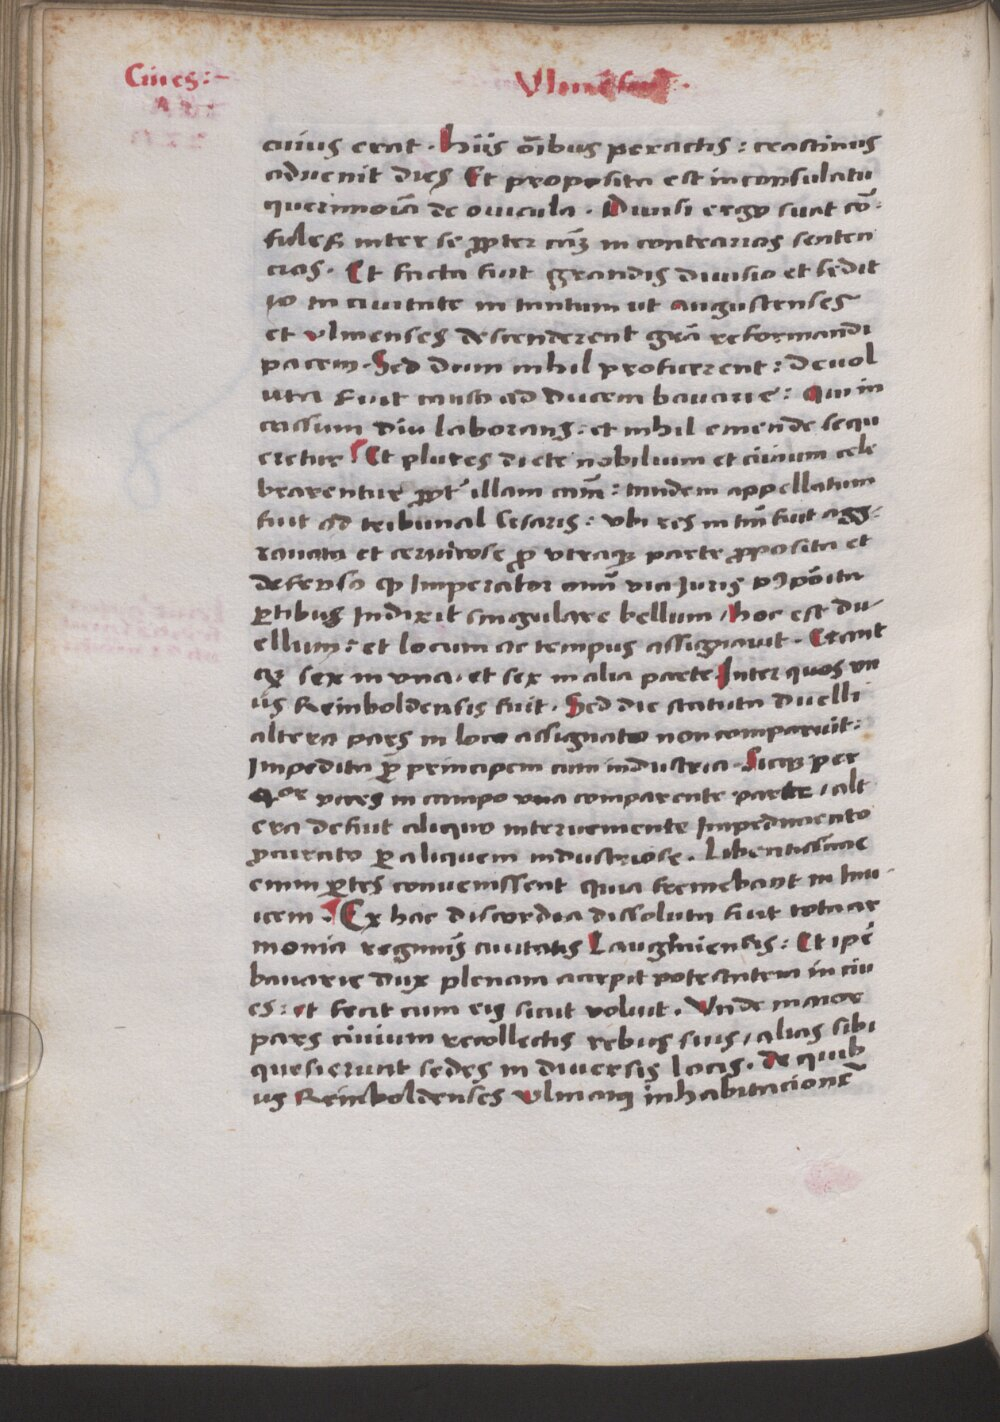 Ciues :-
Vlmenses .
cuius erat . hiis oībus peractis : crastinus
aduenit dies Et proposita est in consulatu
querimoīa de ouicula . Diuisi ergo sunt cō-
sules inter se ꝓpter cām in contrarias senten
cias . Et facta fuit grandis diuisio et sedit
io in ciuitate in tantum vt augustenses
et vlmenses descenderent grā reformandi
pacem . Sed dum nihil proficerent : deuol
uta fuit causa ad ducem bauarie : Qui in
cassum diu laborans : et nihil emende sequ
eretur Et plures diete nobilium et ciuium cele
brarentur ꝓpt illam cām : tandem appellatum
fuit ad tribunal Cesaris : vbi res in tm̄ fuit agg-
rauata et ceruicose ꝓ vtraqꝫ parte ꝓposita et
defensa ꝙ Imperator omī via Iuris p̄pōita
ꝑtibus Indixit singulare bellum / hoc est du-
ellum : et locum ac tempus assignauit . Erant
qꝫ sex in vna . et sex in alia parte Inter quos vn
us Reinboldensis fuit . Sed die statuta duelli
altera pars in loco assignato non comparuit :
Impedita ꝑ principem cum industria . Sicqꝫ per
qͦr vices in campo vna comparente parte / alt
era defuit aliquo interueniente Impedimento
ꝓcurato ꝑ aliquem industriose . Libentissime
enim ꝑtes conuenissent quia fremebant in Inu-
icem . Ex hac discordia dissoluta fuit tota ar
monia regiminis ciuitatis Laugīniensis : Et ipē
bauarie dux plenam accepit potestatem in ciu
es : et fecit cum eis sicut voluit . Vnde maior
pars ciuium recollectis rebus suis / alias sibi
quesierunt sedes in diuersis locis . de quib
us Reinboldenses vlmam inhabitacionē